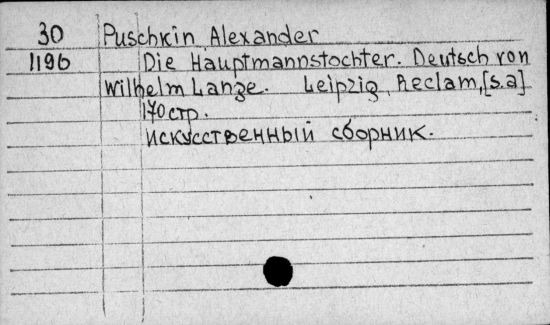 30 Puschkin Alexander
1196 Die Hauptmannstochter. Deutsch von
Wilhelm Lange. Leipzig, Reclam, [s.a]
170 стр.
искусственный сборник.